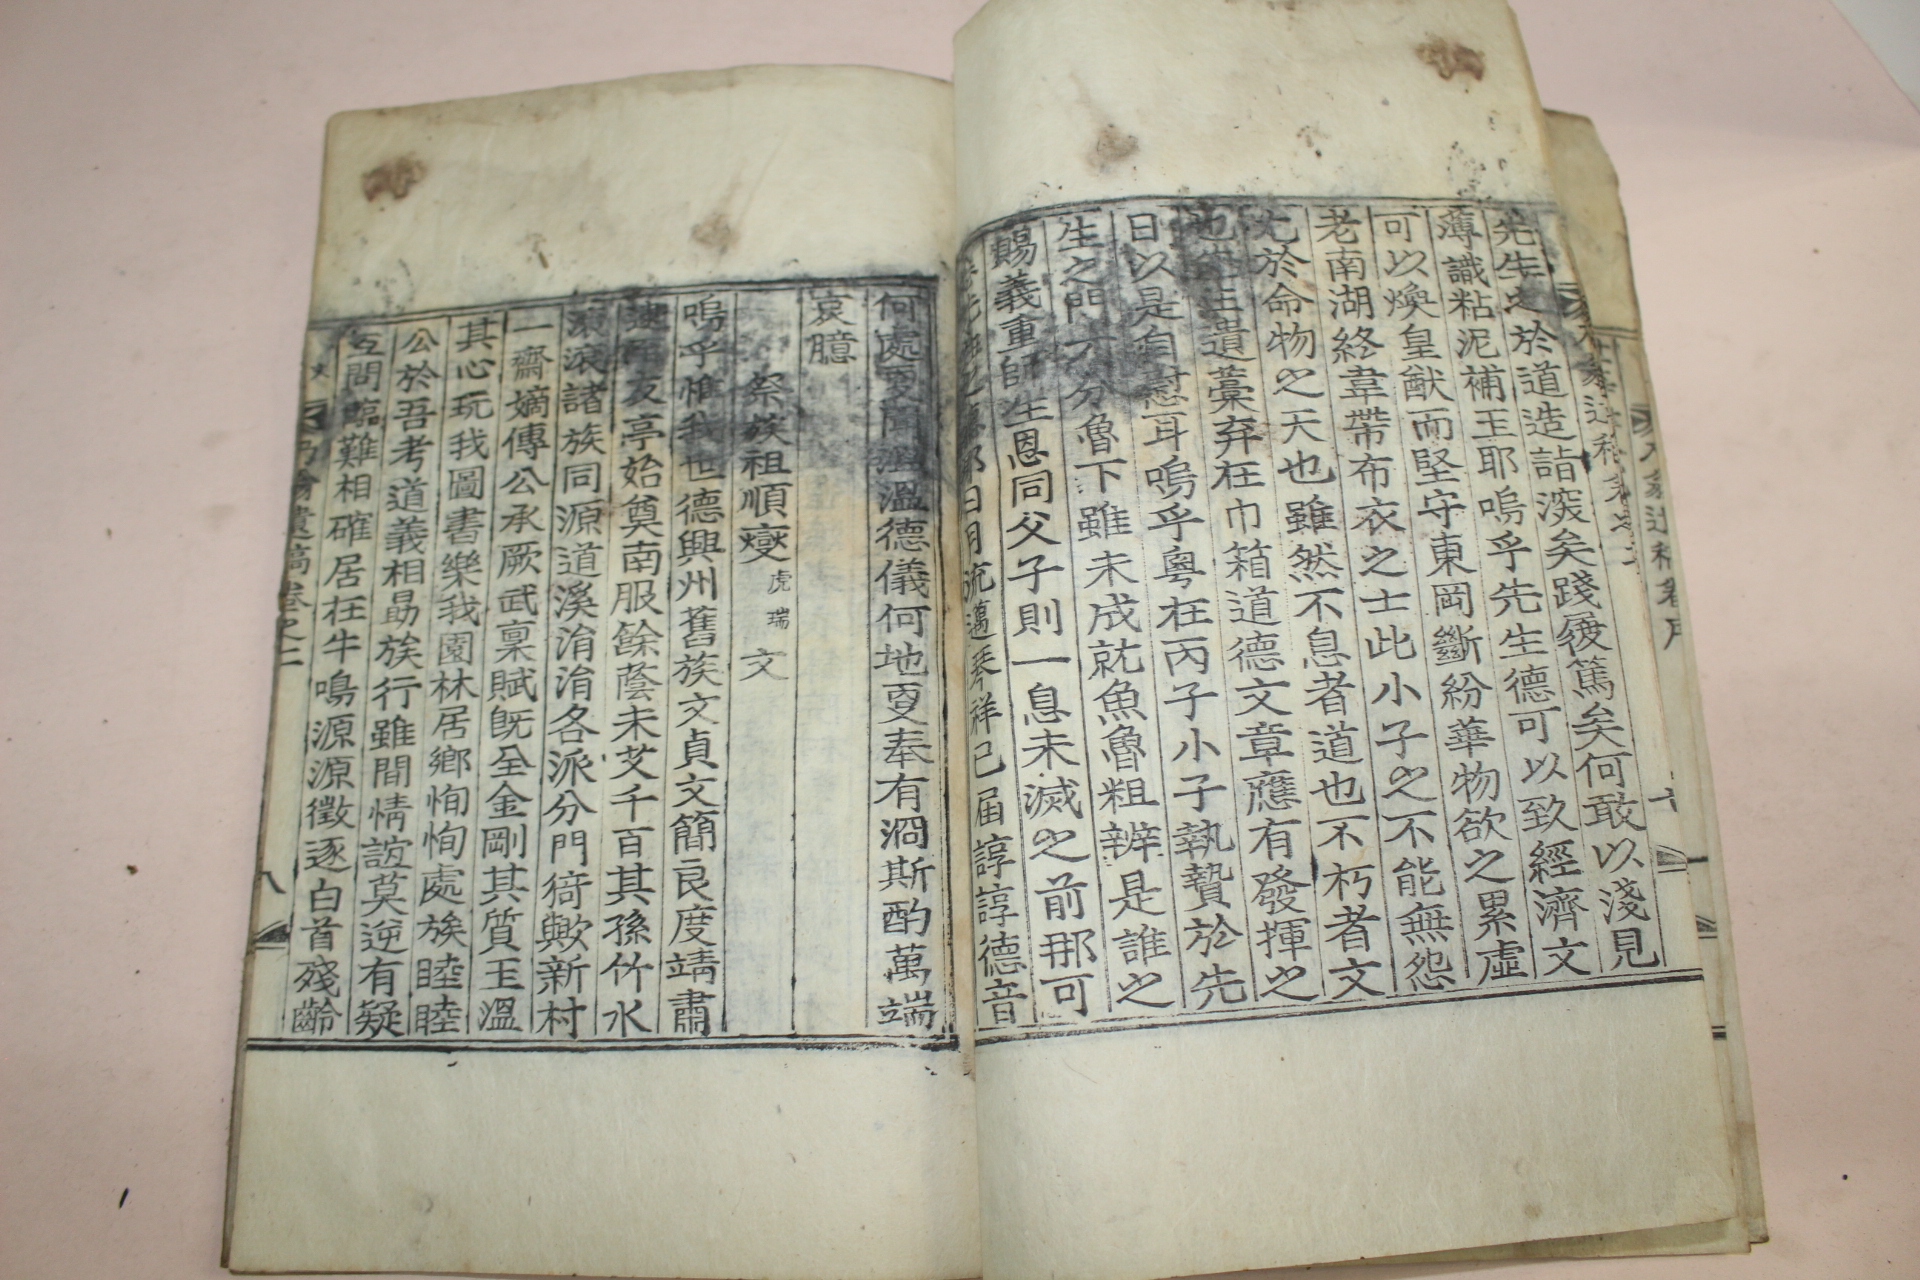 先生之於道造詣深矣踐履篤矣何敢以淺見
薄識粘泥補玉耶嗚乎先生德可以致經濟文
可以煥皇猷而堅守東岡斷紛華物欲之累虛
老南湖終韋帶布衣之士此小子之不能無怨
尤於命物之天也雖然不息者道也不朽者文
也先生遺藁弃在巾箱道德文章應有發揮之
日以是自慰耳嗚乎粤在丙子小子執贄於先
生之門才分魯下雖未成就魚魯粗辨是誰之
賜義重師生恩同父子則一息未滅之前那可
日月流邁琴祥已届諄諄德音
何處更聞溫溫德儀何地更奉有泂斯酌萬端
哀臆
祭族祖順燮 虎瑞 文
嗚乎惟我世德興州舊族文貞文簡良度靖肅
友亭始奠南服餘蔭未艾千百其孫竹水
滾滾諸族同源道溪渻渻各派分門猗歟新村
一齋嫡傳公承厥武稟賦旣全金剛其質玉溫
其心玩我圖書樂我園林居鄉恂恂處族睦睦
公於吾考道義相勗族行雖間情誼莫逆有疑
互問臨難相確居在牛鳴源源徵逐白首殘齡
遺稿卷之二
八